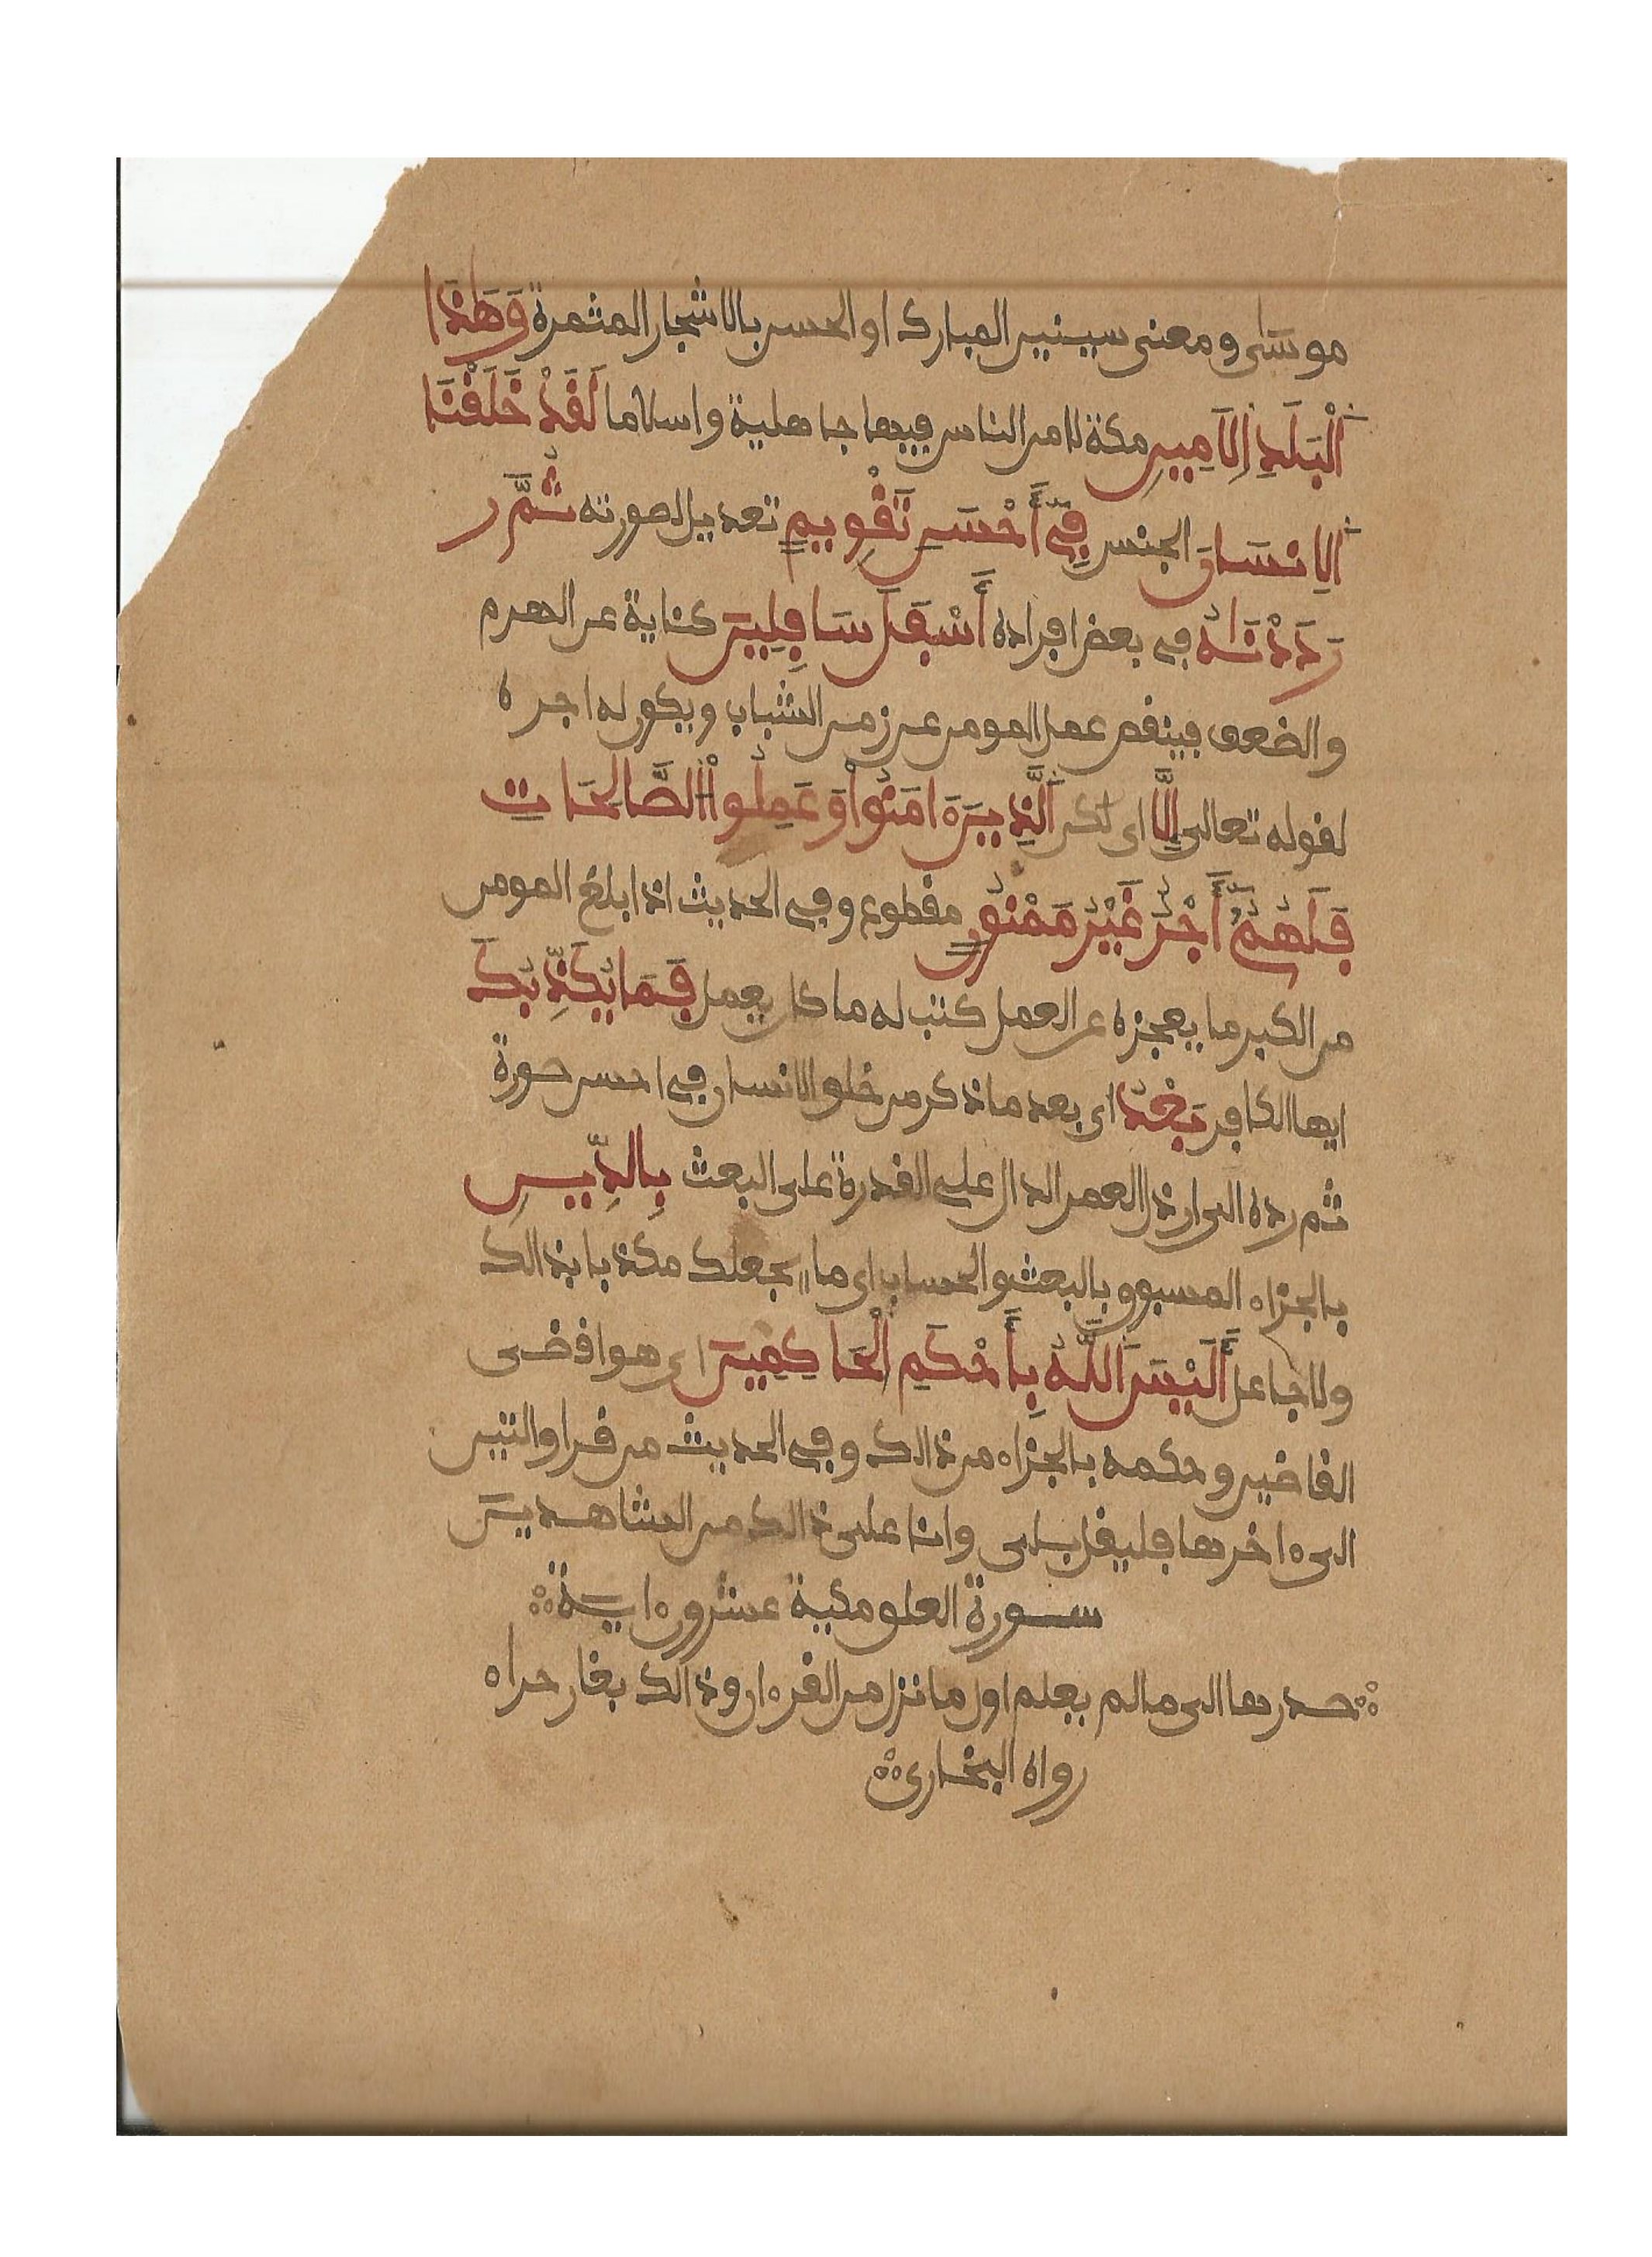 موسى ومعنى سينين المبارك او الحسن بالاشجار المثمرة وَهَٰذَا
اَ۬لْبَلَدِ اِ۬لَامِينِ مكة لامن الناس فيها جاهلية واسلاما لَقَدْ خَلَقْنَا
اَ۬لِانسَانَ الجنس فِےٓ أَحْسَنِ تَقْوِيمٖ تعديل لصورته ثُمَّ ر
رَدَدْنَٰهُ في بعض افراده أَسْفَلَ سَافِلِينَ كناية عن الهرم
والضعف فينقص عمل المومن عن زمن الشباب ويكون له اجره
لقوله تعالى إِلَّا اى لكن اَ۬لذِينَ ءَامَنُواْ وَعَمِلُواْ اُ۬لصَّالِحَاتِ
فَلَهُمُۥٓ أَجْرٌ غَيْرُ مَمْنُونٖ مقطوع وفي الحديث اذا بلغ المومن
من الكبر ما يعجزه عن العمل كتب له ما كان يعمل فَمَا يُكَذِّبُكَ
ايها الكافر بَعْدُ اى بعد ما ذكر من خلق الانسان في احسن صورة
ثم رده الى ارذل العمر الدال على القدرة على البعث بِالدِّينِ
بالجزاء المسبوق بالبعث والحساب اى ما يجعلك مكذبا بذالك
ولا جاعل أَلَيْسَ اَ۬للَّهُ بِأَحْكَمِ اِ۬لْحَاكِمِينَ اى هو اقضى
القاضين وحكمه بالجزاء من ذالك وفي الحديث من قرا والتين
الى ءاخرها فليقل بلى وانا على ذالك من الشاهدين
سورة العلق مكية عشرون ءاية
صدرها الى ما لم يعلم اول ما نزل من القرءان وذالك بغار حراء
رواه البخارى